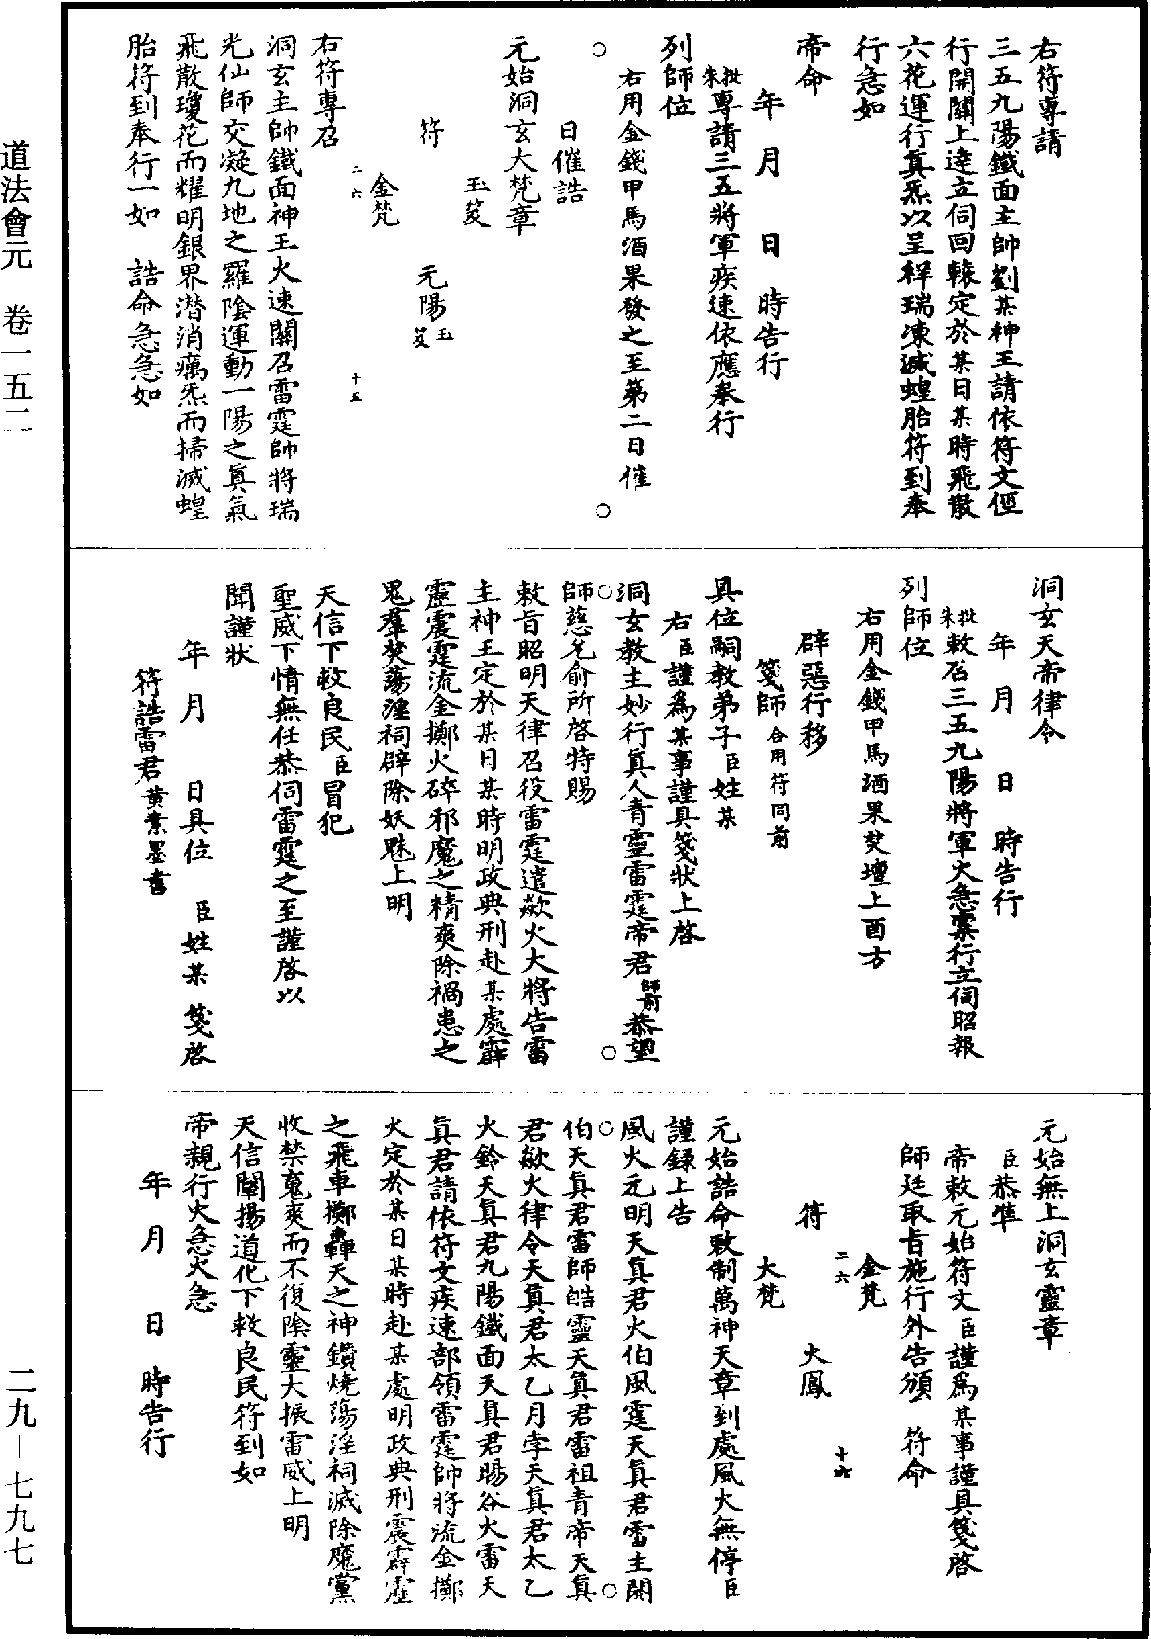 右符專請
三五九陽鐵面主帥劉某神王請依符文徑
行開關上達立伺回轅定於某日某時飛散
六花運行真炁以呈祥瑞凍滅蝗胎符到奉
行急如
帝命
年　月　日　時告行
朱批專請三五將軍疾速依應奉行
列師位
右用金錢甲馬酒果發之至第二日催
○　○
日催誥
元始洞玄大梵章
玉芨
符　元陽玉芨
金梵
二六　十五
右符專召
洞玄主帥鐵面神王火速關召雷霆師將瑞
光仙師交凝九地之羅陰運動一陽之真氣
飛散瓊花而耀明銀界潛消癘炁而掃滅蝗
胎符到奉行一如　誥命急急如
洞玄天帝律令
年　月　日　時告行
朱批敕召三五九陽將軍火急稟行立伺昭報
列師位
右用金錢甲馬酒果焚壇上酉方
辟惡行移
箋師合用符同前
具位嗣教弟子臣姓某
右臣謹為某事謹具箋狀上啓
洞玄教主妙行真人青靈雷霆帝君師前恭望
○　○
師慈允俞所啓特賜
敕旨昭明天律召役雷霆遣歘火大將告雷
主神王定於某日某時明政典刑赴某處霹
靂震霆流金擲火碎邪魔之精爽除禍患之
鬼羣焚蕩淫祠辟除妖魅上明
天信下救良民臣冒犯
聖威下情無任恭伺雷霆之至謹啓以
聞謹狀
年　月　日具位　臣姓某　箋啓
符誥雷君黃素墨書
元始無上洞玄靈章
臣恭準
帝敕元始符文臣謹為某事謹具箋啓
師廷取旨施行外告頒　符命
金梵
二六　十六
符　火鳳
大梵
元始誥命敕制萬神天章到處風火無停臣
謹錄上告
風火元明天真君火伯風霆天真君雷主閼
○　○
伯天真君雷師皓靈天真君雷祖青帝天真
君歘火律令天真君太乙月孛天真君太乙
火鈴天真君九陽鐵面天真君暘谷火雷天
真君請依符文疾速部領雷霆師將流金擲
火定於某日某時赴某處明政典刑震霹靂
之飛車擲轟天之神鑽燒蕩淫祠滅除魔黨
收禁嵬爽而不復陰靈大振雷威上明
天信闡揚道化下救良民符到如
帝親行火急火急
年　月　日　時告行
道法會元　卷一五二
二九—七九七